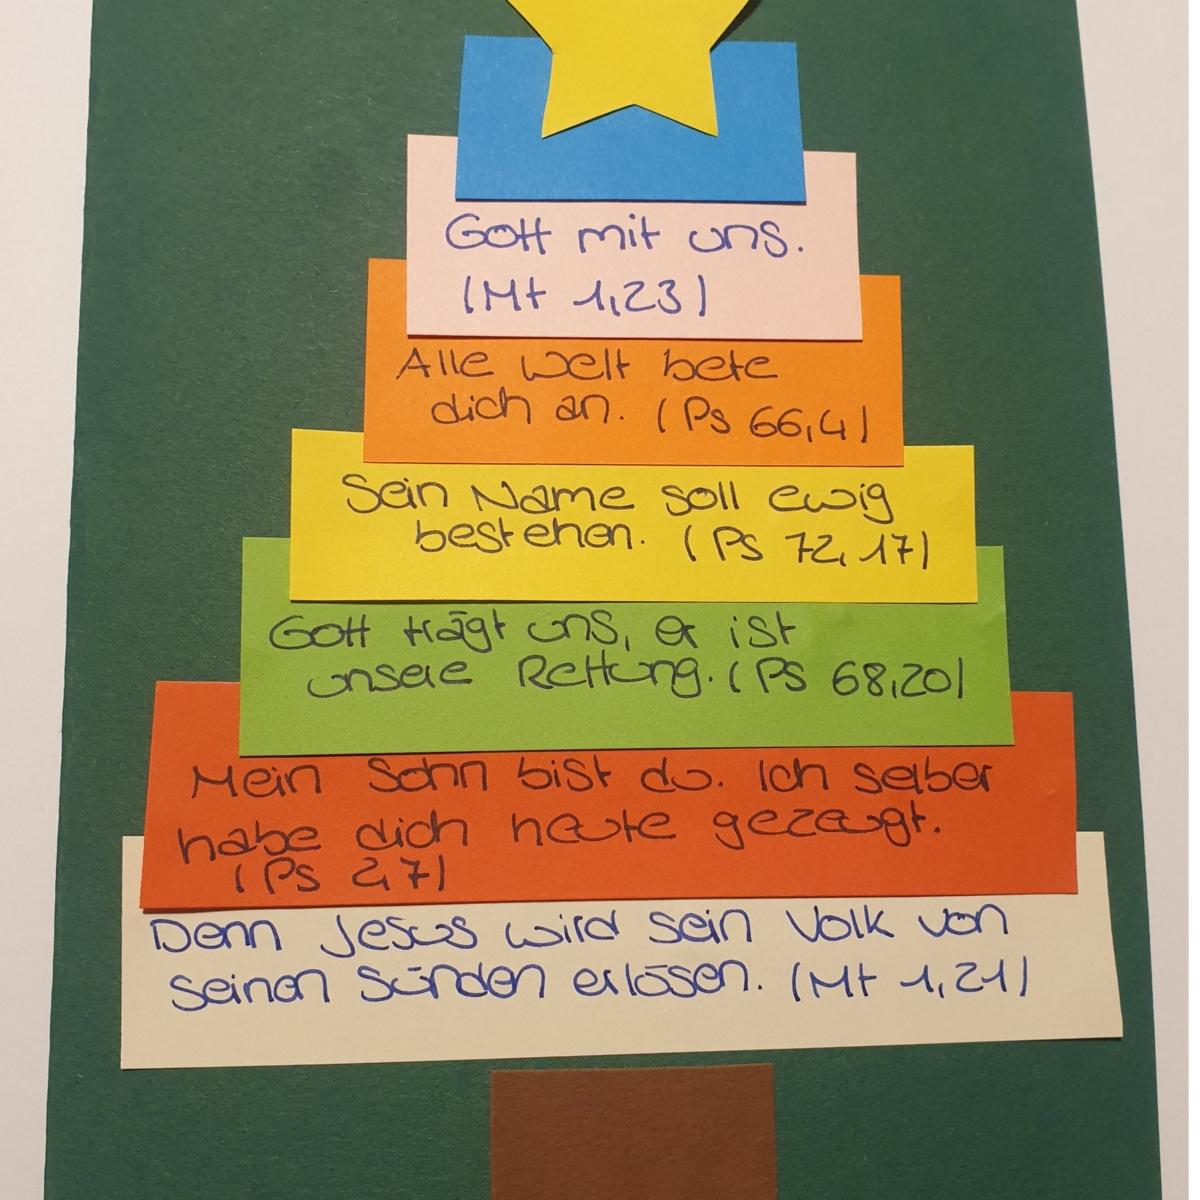 Gott mit uns.
(Mt 1,23)
Alle Welt bete
dich an. (Ps 66,4)
Sein Name soll ewig
bestehen. (Ps 72,17)
Gott trägt uns, er ist
unsere Rettung. (Ps 68,20)
Mein Sohn bist du. Ich selber
habe dich heute gezeugt.
(Ps 2,7)
Denn Jesus wird sein Volk von
seinen Sünden erlösen. (Mt 1,21)